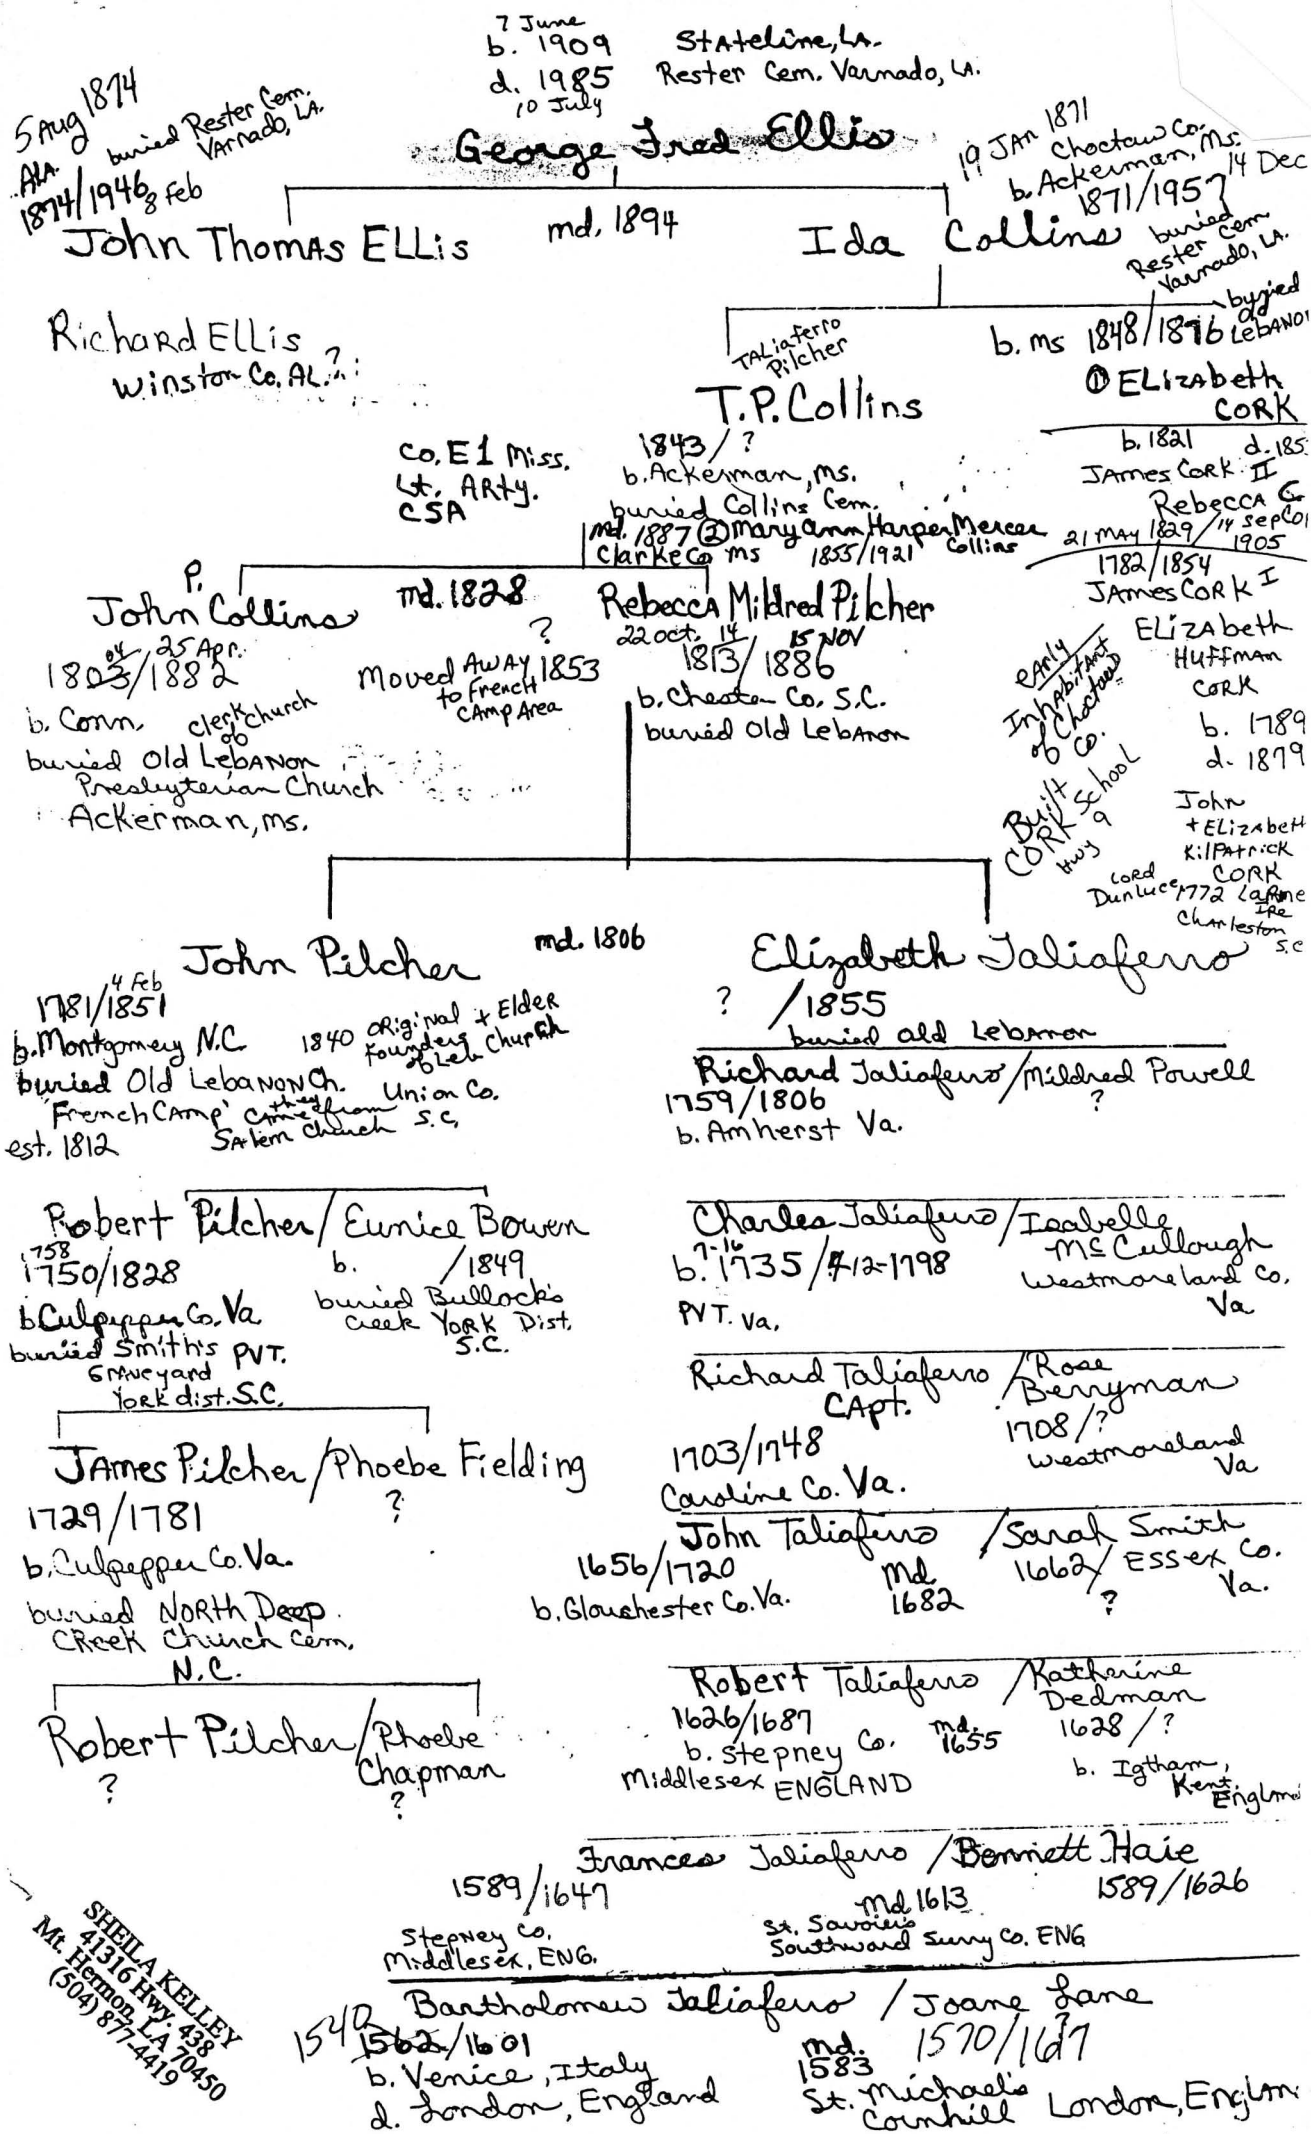 7 June
b. 1909 Stateline, LA.
d. 1985 Rester Cem. Varnado, LA.
10 July
George Fred Ellis
5 Aug 1874
ALA.
buried Rester Cem.
Varnado, LA.
1874/1946
8 Feb
John Thomas ELLis
md. 1894
19 JAN 1871
Choctaw Co.
b. Ackerman, Ms.
1871/1957 14 Dec
Ida Collins
buried
Rester Cem
Varnado, LA.
Richard ELLIS
Winston Co. AL. ?
TALiaferro
Pilcher
T.P. Collins
1843/?
b. Ackerman, Ms.
buried Collins Cem.
Co. E 1 Miss.
Lt. ARty.
CSA
md. 1887 ② Mary Ann Harper Mercer
Clarke Co ms 1855/1921 Collins
b. ms 1848/1876
buried
old
LebANON
① ELizAbeth
CORK
b. 1821 d. 185
JAmes CORK II
Rebecca G.
21 MAy 1829/14 Sep
1905
1782/1854
JAmes CORK I
ELizAbeth
HUFFMAN
CORK
b. 1789
d. 1879
early
InhAbitAnt
of Choctaw
Co.
Built
CORK School
Hwy 9
John
+ ELizAbeth
KilPAtrick
CORK
LORD
Dunluce 1772 LaRne
IRe
Charleston
S.C
P.
John Collins
04
1803/1882
25 Apr.
b. Conn.
Clerk of Church
buried Old LebANON
Presbyterian Church
Ackerman, ms.
md. 1828
?
Moved AwAy 1853
to French
CAmp Area
RebeccA Mildred Pilcher
22 Oct. 14 15 NOV
1813/1886
b. Chester Co. S.C.
buried Old LebAnon
John Pilcher
md. 1806
4 Feb
1781/1851
b. Montgomery N.C.
buried Old LebaNON Ch.
'French CAmp'
est. 1812
1840 ORiginal + Elder
Founders
of Leb Church
they
came from
Union Co.
SAlem Church S.C.
Elizabeth Taliaferro
? /1855
buried old LebAnon
Richard Taliaferro/Mildred Powell
1759/1806 ?
b. Amherst Va.
Robert Pilcher/Eunice Bowen
1758
1750/1828
b. /1849
b Culpepper Co. Va.
buried Smith's PVT.
GRAveyard
York dist. S.C.
buried Bullock's
Creek YORK Dist.
S.C.
Charles Taliaferro/Isabelle
McCullough
7-16
b. 1735/4-12-1798
Westmoreland Co.
Va
PVT. Va.
Richard Taliaferro/Rose
CApt. Berryman
1703/1748 1708/?
Caroline Co. Va. Westmoreland
Va
JAmes Pilcher/Phoebe Fielding
1729/1781 ?
b. Culpepper Co. Va.
buried NORth Deep
CReek Church Cem.
N.C.
John Taliaferro/Sarah Smith
1656/1720 md. 1662/? ESSex Co.
b. Glouchester Co. Va. 1682 Va.
Robert Pilcher/Phoebe
Chapman
? ?
Robert Taliaferro/Katherine
Dedman
1626/1687 md. 1628/?
b. Stepney Co. 1655
Middlesex ENGLAND
b. Igtham,
Kent,
Englan
Frances Taliaferro/Bennett Haie
1589/1647 md 1613 1589/1626
Stepney Co.
Middlesex, ENG.
St. Savoier's
Southward Surry Co. ENG
Bartholomew Taliaferro/Joane Lane
1540
1562/1601
b. Venice, Italy
d. London, England
md.
1583
St. Michael's
Cornhill London, Englan
SHEILA KELLEY
41316 Hwy. 438
Mt. Hermon, LA 70450
(504) 877-4419